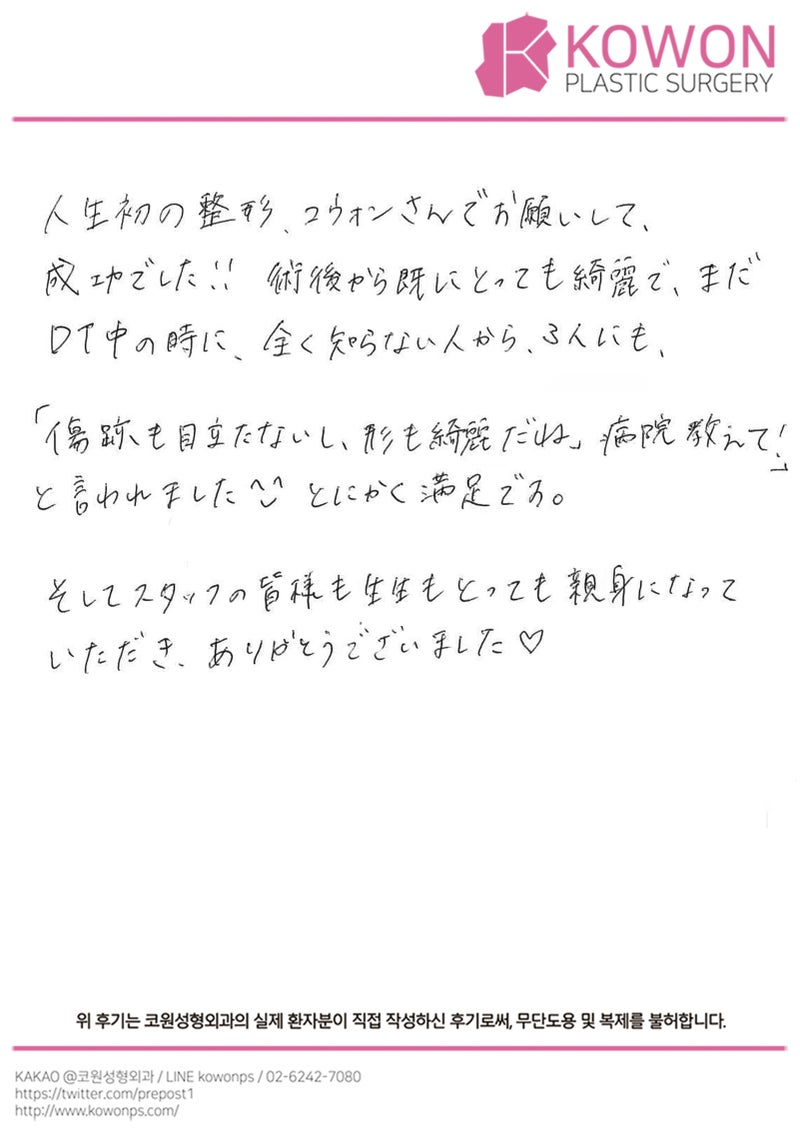 KOWON
PLASTIC SURGERY
人生初の整形、コウォンさんでお願いして、
成功でした!! 術後から既にとっても綺麗で、まだ
DT中の時に、全く知らない人から、3人にも、
「傷跡も目立たないし、形も綺麗だね」病院教えて!」
と言われました^^ とにかく満足です。
そしてスタッフの皆様も生生もとっても親身になって
いただき、ありがとうございました♡
위 후기는 코원성형외과의 실제 환자분이 직접 작성하신 후기로써, 무단도용 및 복제를 불허합니다.
KAKAO @코원성형외과 / LINE kowonps / 02-6242-7080
https://twitter.com/prepost1
http://www.kowonps.com/